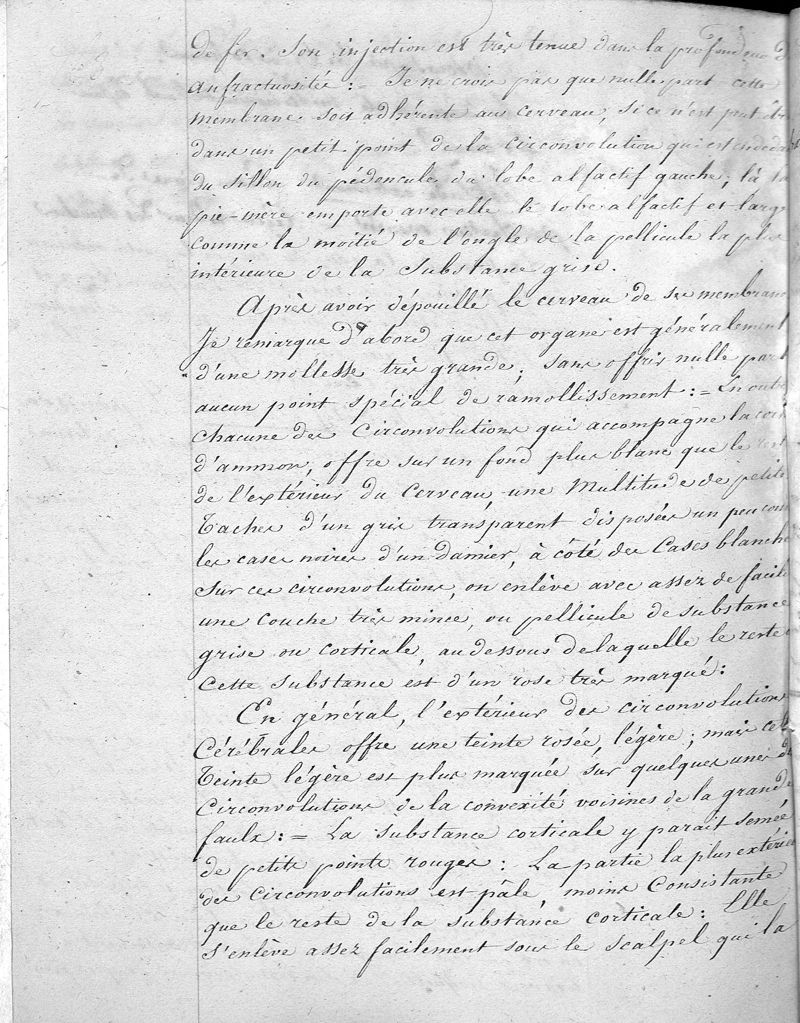 de fer. Son injection est très tenue dans la profondeur d
anfractuosités : = Je ne crois pas que nulle part cette
membrane soit adhérente au cerveau, si ce n'est peut êtr
dans un petit point de la circonvolution qui est endeda
du sillon du pédoncule du lobe alfactif gauche; là la
pie-mère emporte avec elle le lobe alfactif et large
comme la moitié de l'ongle de la pellicule la plus
intérieure de la Substance grise.
Après avoir dépouillé le cerveau de ses membrane
Je remarque d'abord que cet organe est généralement
d'une mollesse très grande; sans offrir nulle part
aucun point spécial de ramollissement : = En outre
chacune des Circonvolutions qui accompagne la cor
d'ammon, offre sur un fond plus blanc que le rest
de l'extérieur du Cerveau, une Multitude de petite
taches d'un gris transparent disposées un peu com
les cases noires d'un damier, à côté des Cases blanche
Sur ces circonvolutions, on enlève avec assez de facili
une couche très mince, ou pellicule de substance
grise ou corticale, au dessous de laquelle le reste
Cette substance est d'un rose très marqué :
En général, l'extérieur des circonvolutions
Cérébrales offre une teinte rosée, légère; mais cet
teinte légère est plus marquée sur quelques unes d
Circonvolutions de la convexité voisines de la grande
faulx : = La substance corticale y parait semée
de petits points rouges : La partie la plus extérie
des Circonvolutions est pâle, moins Consistante
que le reste de la substance corticale : Elle
s'enlève assez facilement sous le scalpel qui la